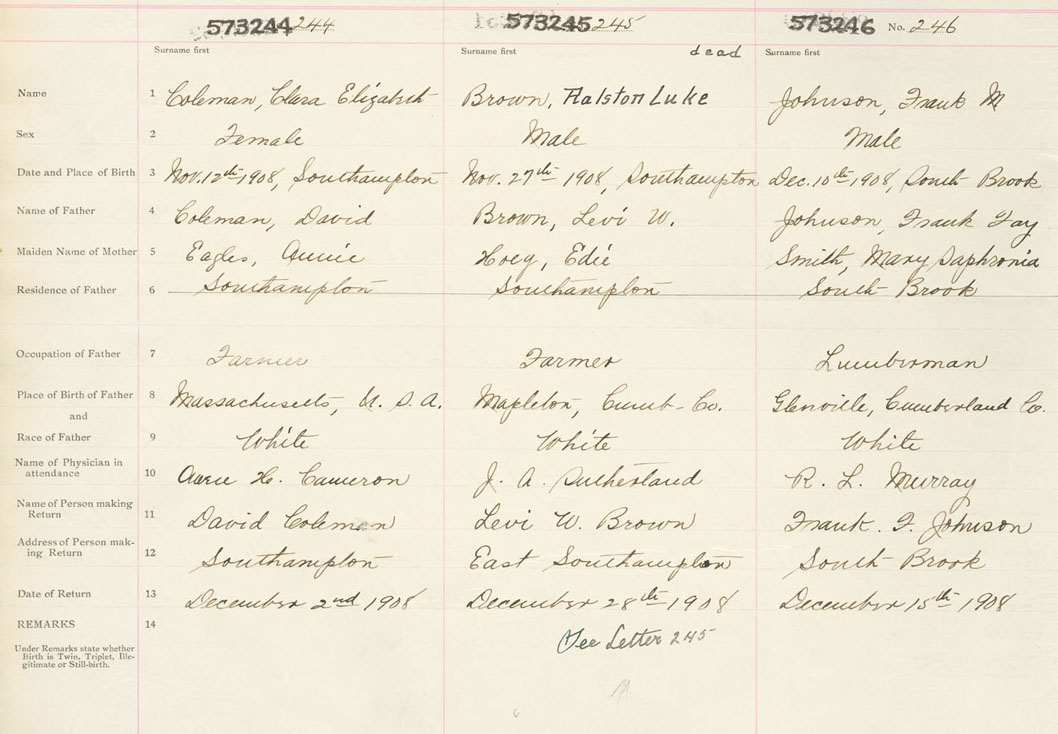 573244 244 573245 245 573246 No. 246
Surname first Surname first dead Surname first
Name 1 Coleman, Clara Elizabeth Brown, Ralston Luke Johnson, Frank M
Sex 2 Female Male Male
Date and Place of Birth 3 Nov. 12th 1908, Southampton Nov. 27th 1908, Southampton Dec. 10th 1908, South Brook
Name of Father 4 Coleman, David Brown, Levi W. Johnson, Frank Fay
Maiden Name of Mother 5 Eagles, Annie Hoeg, Edie Smith, Mary Saphronia
Residence of Father 6 Southampton Southampton South Brook
Occupation of Father 7 Farmer Farmer Lumberman
Place of Birth of Father 8 Massachusetts, U. S. A. Mapleton, Cumb. Co. Glenville, Cumberland Co.
and
Race of Father 9 White White White
Name of Physician in
attendance 10 H. Cameron J. A. Sutherland R. L. Murray
Name of Person making
Return 11 David Coleman Levi W. Brown Frank. F. Johnson
Address of Person mak-
ing Return 12 Southampton East Southampton South Brook
Date of Return 13 December 2nd 1908 December 28th 1908 December 15th 1908
REMARKS 14
See Letter 245
Under Remarks state whether
Birth is Twin, Triplet, Ille-
gitimate or Still-birth.